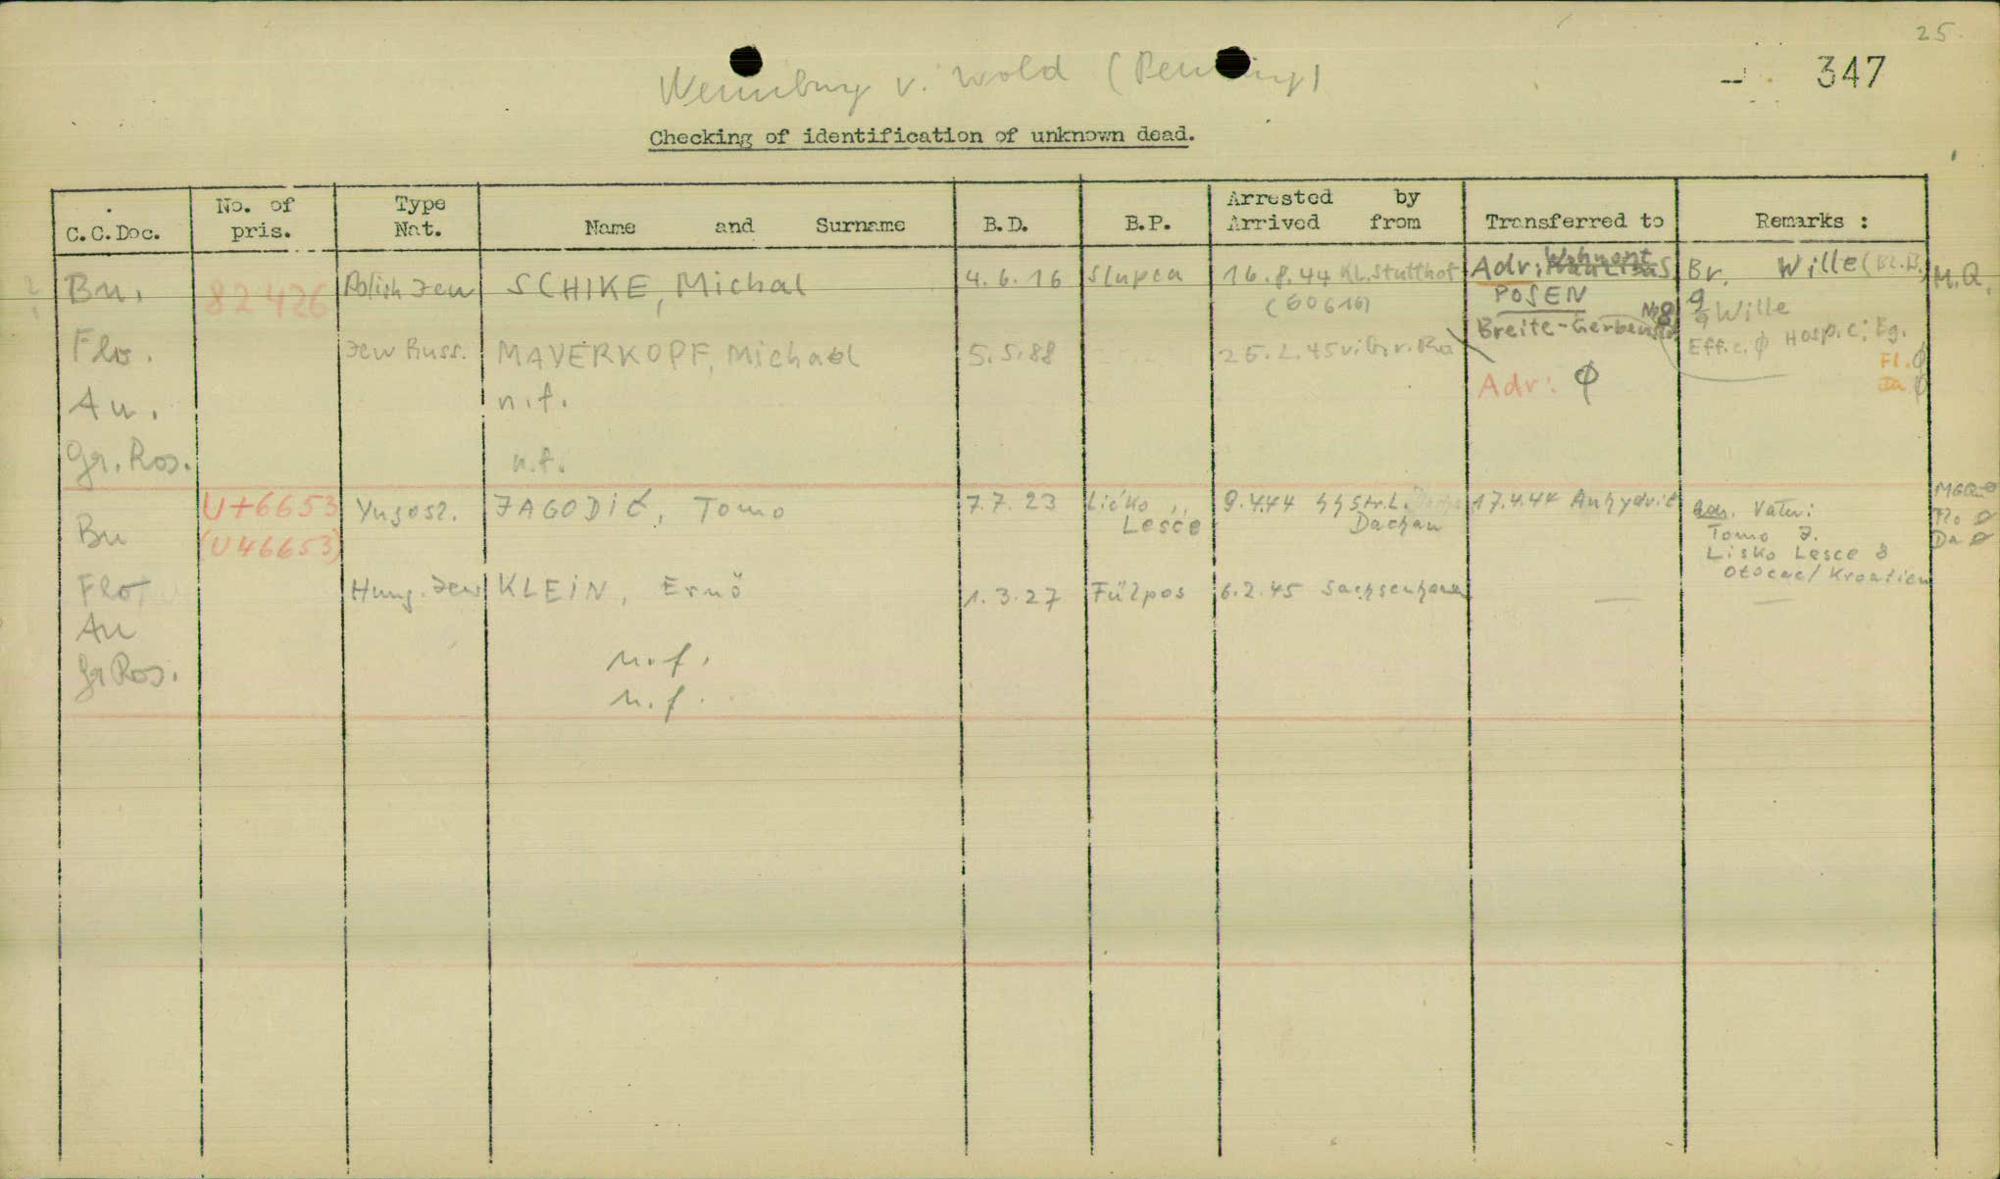 25.
347
Neunburg v. Wald
Checking of identification of unknown dead.
C.C.Doc.
No. of pris.
Type Nat.
Name and Surname
B.D.
B.P.
Arrested by
Arrived from
Transferred to
Remarks :
Bu. 82426 Polish Jew SCHIKE, Michal 4.6.16 Slupca 16.8.44 KL. Stutthof Adr: Br. Wille M.Q.
POSEN
Breite-Gerberstr
Wille
Eff.c. φ Hosp.c:
Fl. φ
Da φ
Flo. Jew Russ. MAYERKOPF, Michael 5.5.88 Adr: φ
Au. n.f.
Gr. Ros. n.f.
Bu U46653 Yugosl. JAGODIĆ, Tomo 7.7.23 Ličko Lesce 9.4.44 Dachau 17.4.44 Anhydrit Adr. Vater:
(U46653)
Tomo J.
Lisko Lesce 8
Otocac/Kroatien
Flo ø
Da ø
Flo. Hung. Jew KLEIN, Ernö 1.3.27 Fülpos 6.2.45 Sachsenhausen — —
Au n.f.
Gr Ros. n.f.